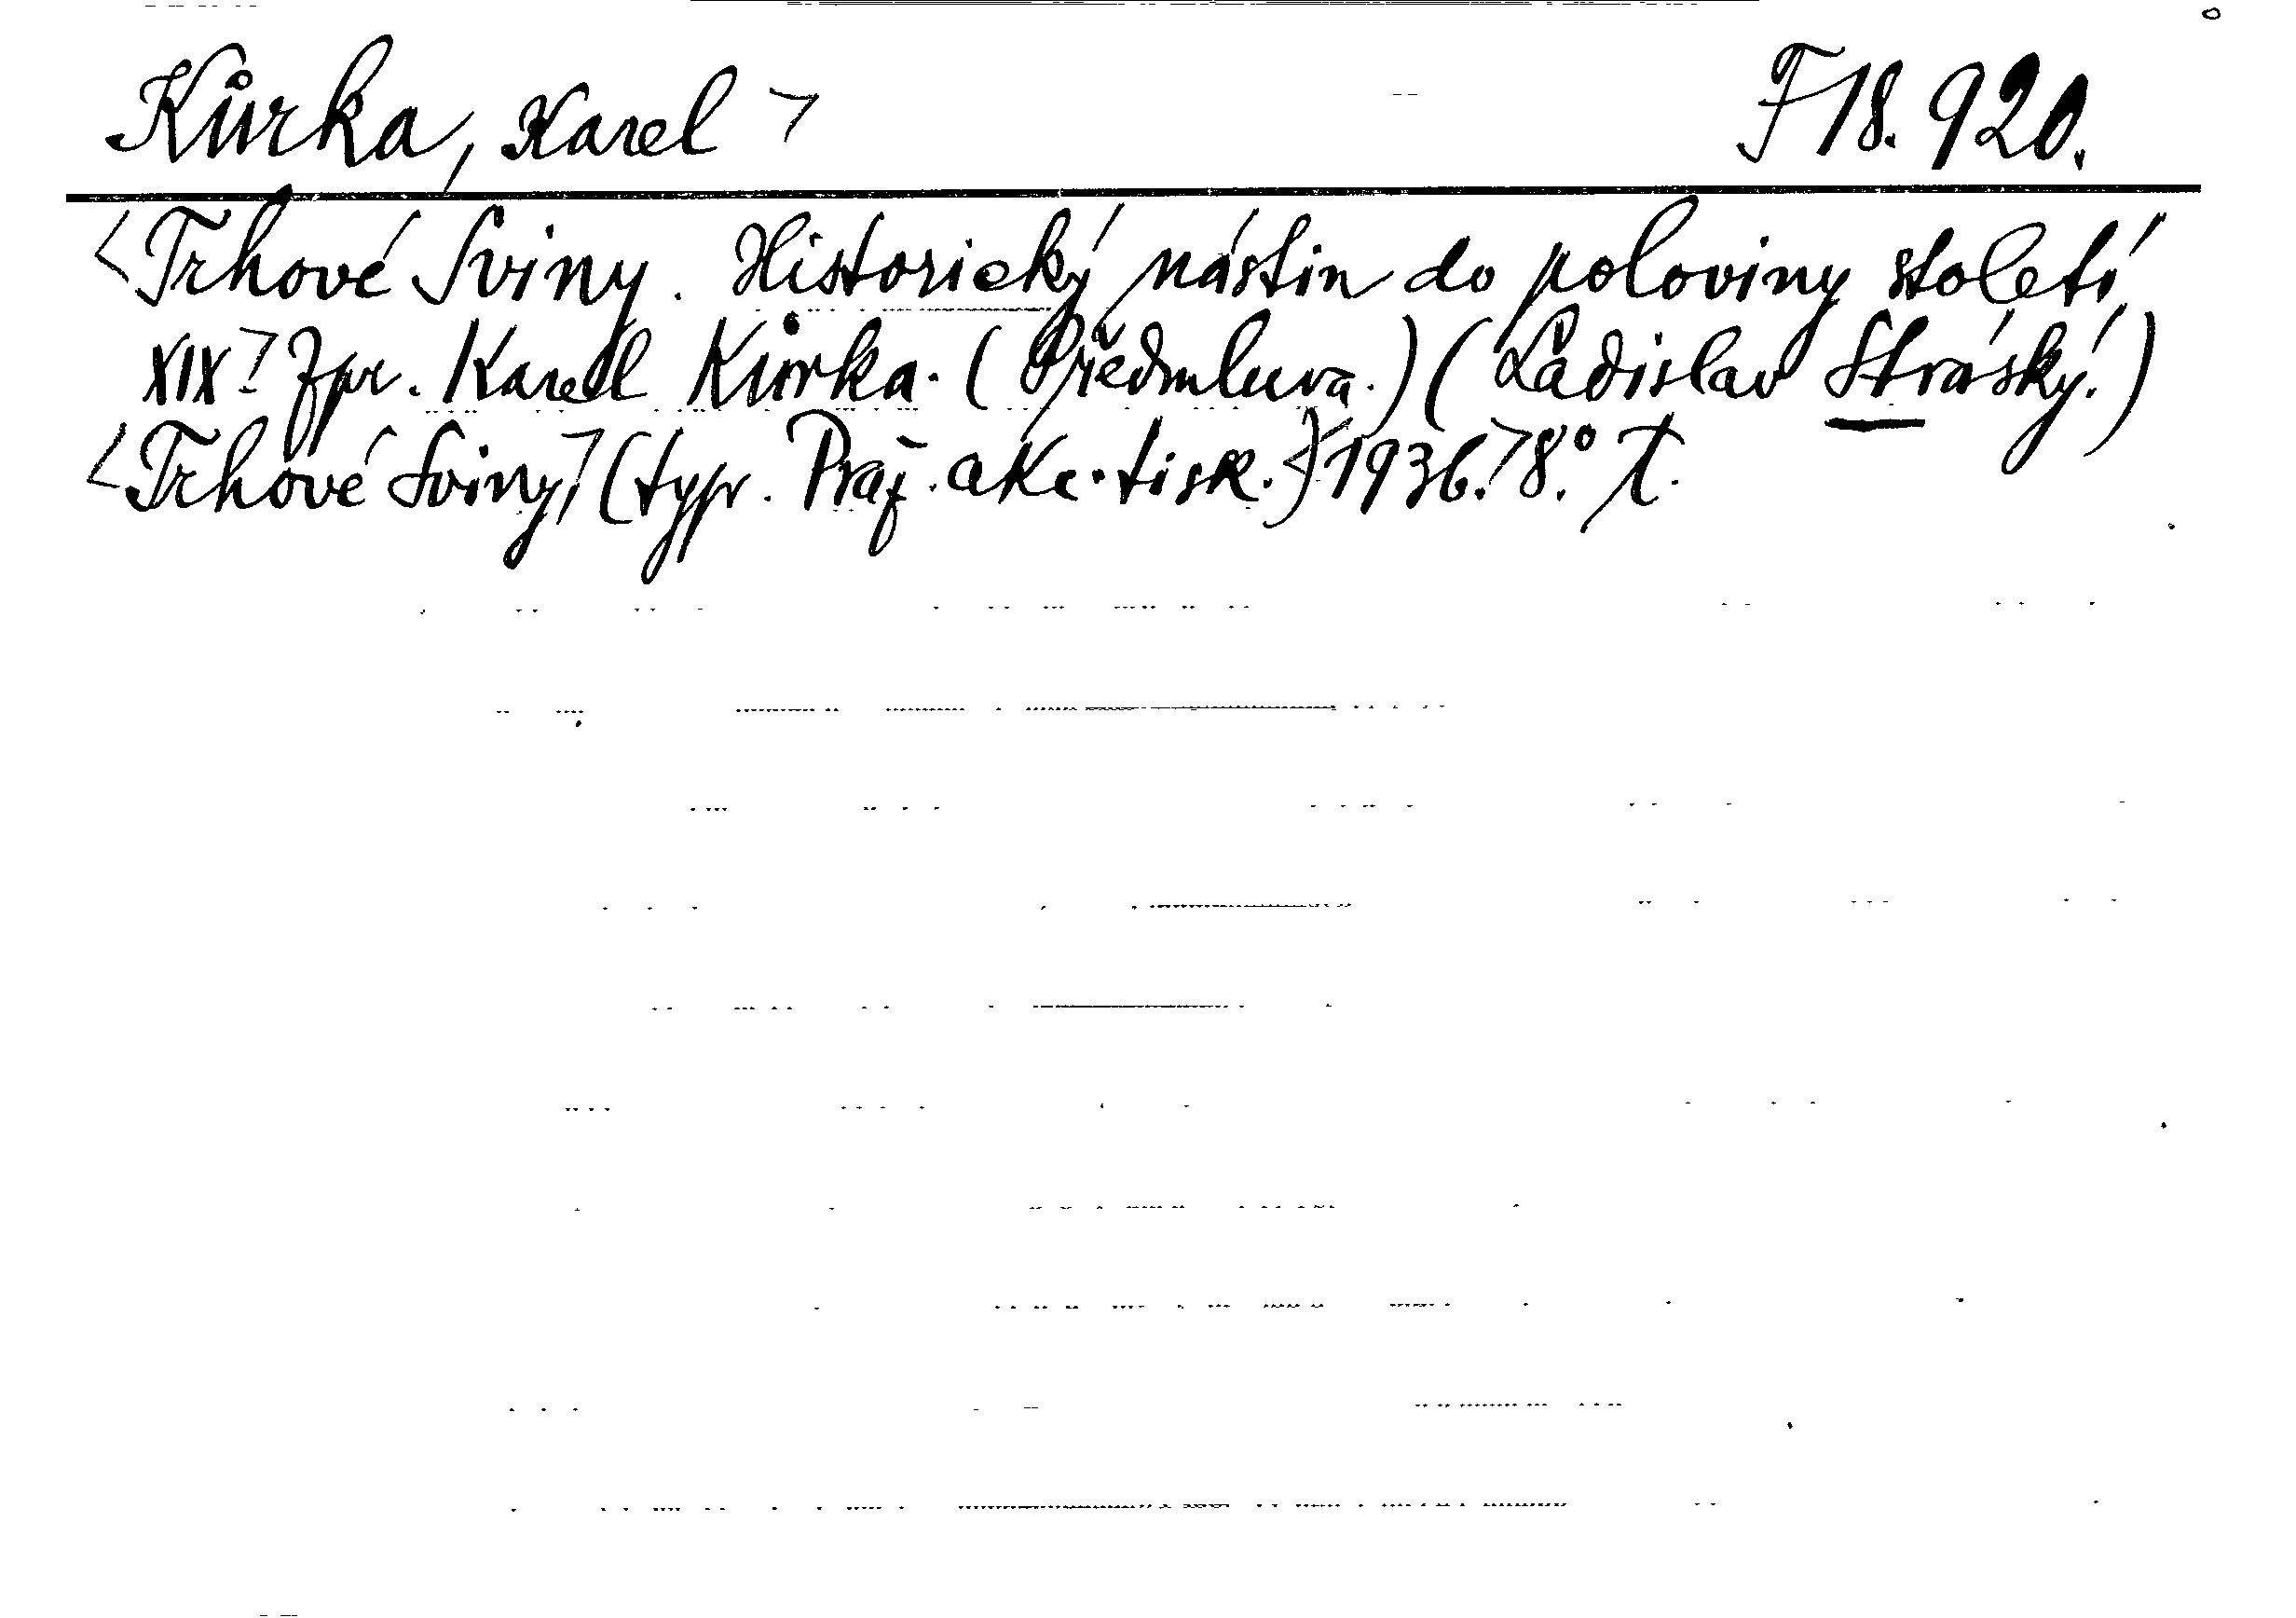 Kůrka, Karel > F 18.920.
<Trhové Sviny. Historický nástin do poloviny století
XIX.> Zpr. Karel Kůrka. (Předmluva.) (Ladislav Stráský.)
<Trhové Sviny,> (typr. Praž. akc. tisk.) <1936.> 8.° T.